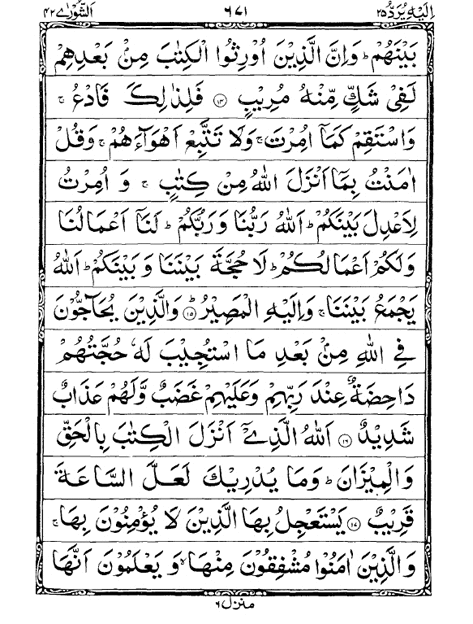 اليه يرد ٢٥ ٦٧١ الشورى ٤٢
بَيْنَهُمْ ؕ وَاِنَّ الَّذِيْنَ اُوْرِثُوا الْكِتٰبَ مِنْۢ بَعْدِهِمْ
لَفِيْ شَكٍّ مِّنْهُ مُرِيْبٍ ⑭ فَلِذٰلِكَ فَادْعُ ۚ
وَاسْتَقِمْ كَمَاۤ اُمِرْتَ ۚ وَلَا تَتَّبِعْ اَهْوَآءَهُمْ ۚ وَقُلْ
اٰمَنْتُ بِمَاۤ اَنْزَلَ اللّٰهُ مِنْ كِتٰبٍ ۚ وَ اُمِرْتُ
لِاَعْدِلَ بَيْنَكُمْ ؕ اَللّٰهُ رَبُّنَا وَ رَبُّكُمْ ؕ لَنَاۤ اَعْمَالُنَا
وَلَكُمْ اَعْمَالُكُمْ ؕ لَا حُجَّةَ بَيْنَنَا وَ بَيْنَكُمْ ؕ اَللّٰهُ
يَجْمَعُ بَيْنَنَا ۚ وَاِلَيْهِ الْمَصِيْرُ ؕ ⑮ وَالَّذِيْنَ يُحَآجُّوْنَ
فِي اللّٰهِ مِنْۢ بَعْدِ مَا اسْتُجِيْبَ لَهٗ حُجَّتُهُمْ
دَاحِضَةٌ عِنْدَ رَبِّهِمْ وَعَلَيْهِمْ غَضَبٌ وَّلَهُمْ عَذَابٌ
شَدِيْدٌ ⑯ اَللّٰهُ الَّذِيْۤ اَنْزَلَ الْكِتٰبَ بِالْحَقِّ
وَالْمِيْزَانَ ؕ وَمَا يُدْرِيْكَ لَعَلَّ السَّاعَةَ
قَرِيْبٌ ⑰ يَسْتَعْجِلُ بِهَا الَّذِيْنَ لَا يُؤْمِنُوْنَ بِهَا ۚ
وَالَّذِيْنَ اٰمَنُوْا مُشْفِقُوْنَ مِنْهَا ۙ وَ يَعْلَمُوْنَ اَنَّهَا
منزل ٦